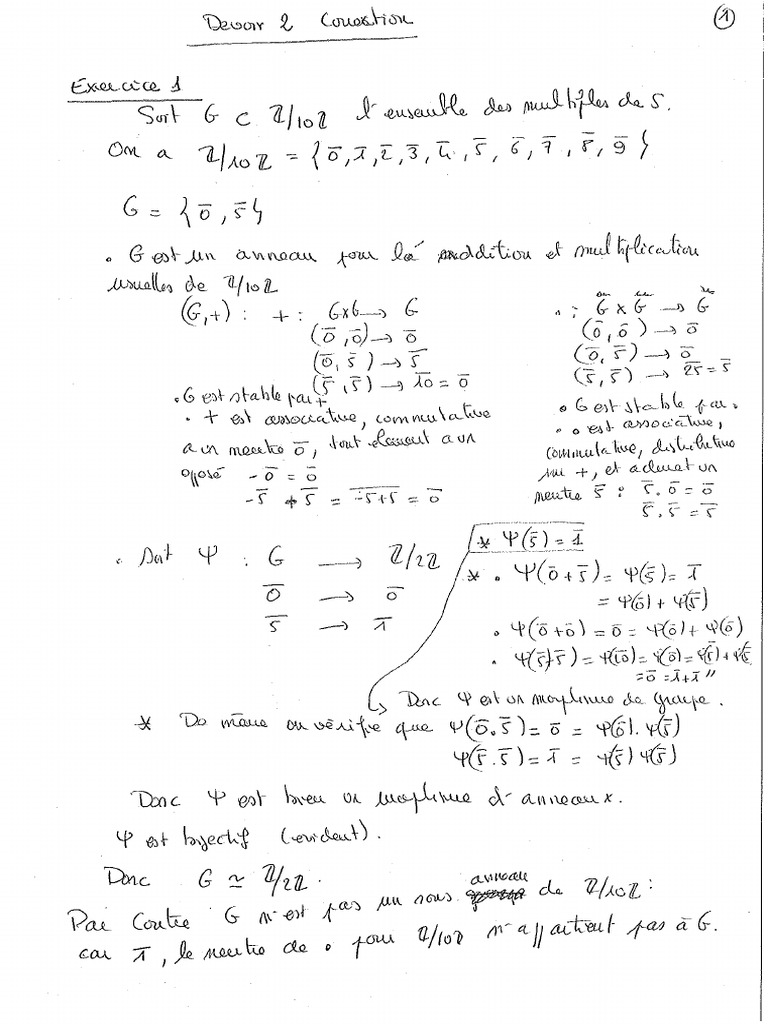 Devoir 2 Correction
①
Exercice 1
Soit G ⊂ ℤ/10ℤ l'ensemble des multiples de 5.
On a ℤ/10ℤ = {0̄, 1̄, 2̄, 3̄, 4̄, 5̄, 6̄, 7̄, 8̄, 9̄}
G = {0̄, 5̄}
• G est un anneau pour la addition et multiplication
usuelles de ℤ/10ℤ
(G,+) : + : G×G → G
(0̄,0̄) → 0̄
(0̄,5̄) → 5̄
(5̄,5̄) → 10̅ = 0̄
• G est stable par +
• + est associative, commutative
a un neutre 0̄, tout element a un
opposé -0̄ = 0̄
-5̄ + 5̄ = -5+5̅ = 0̄
• : G × G → G
(0̄,0̄) → 0̄
(0̄,5̄) → 0̄
(5̄,5̄) → 25̅ = 5̄
• G est stable par .
• • est associative,
commutative, distributive
sur +, et admet un
neutre 5̄ : 5̄.0̄ = 0̄
5̄.5̄ = 5̄
• Soit Ψ : G → ℤ/2ℤ
0̄ → 0̄
5̄ → 1̄
* Ψ(5̄) = 1̄
* • Ψ(0̄+5̄) = Ψ(5̄) = 1̄
= Ψ(0̄) + Ψ(5̄)
• Ψ(0̄+0̄) = 0̄ = Ψ(0̄) + Ψ(0̄)
• Ψ(5̄+5̄) = Ψ(10̅) = Ψ(0̄) = Ψ(5̄) + Ψ(5̄)
= 0̄ = 1̄+1̄ "
Donc Ψ est un morphisme de groupe.
* De même on vérifie que Ψ(0̄.5̄) = 0̄ = Ψ(0̄).Ψ(5̄)
Ψ(5̄.5̄) = 1̄ = Ψ(5̄)Ψ(5̄)
Donc Ψ est bien un morphisme d'anneaux.
Ψ est bijectif (evident).
Donc G ≃ ℤ/2ℤ.
Par contre G n'est pas un sous anneau de ℤ/10ℤ :
car 1̄, le neutre de • pour ℤ/10ℤ n'appartient pas à G.